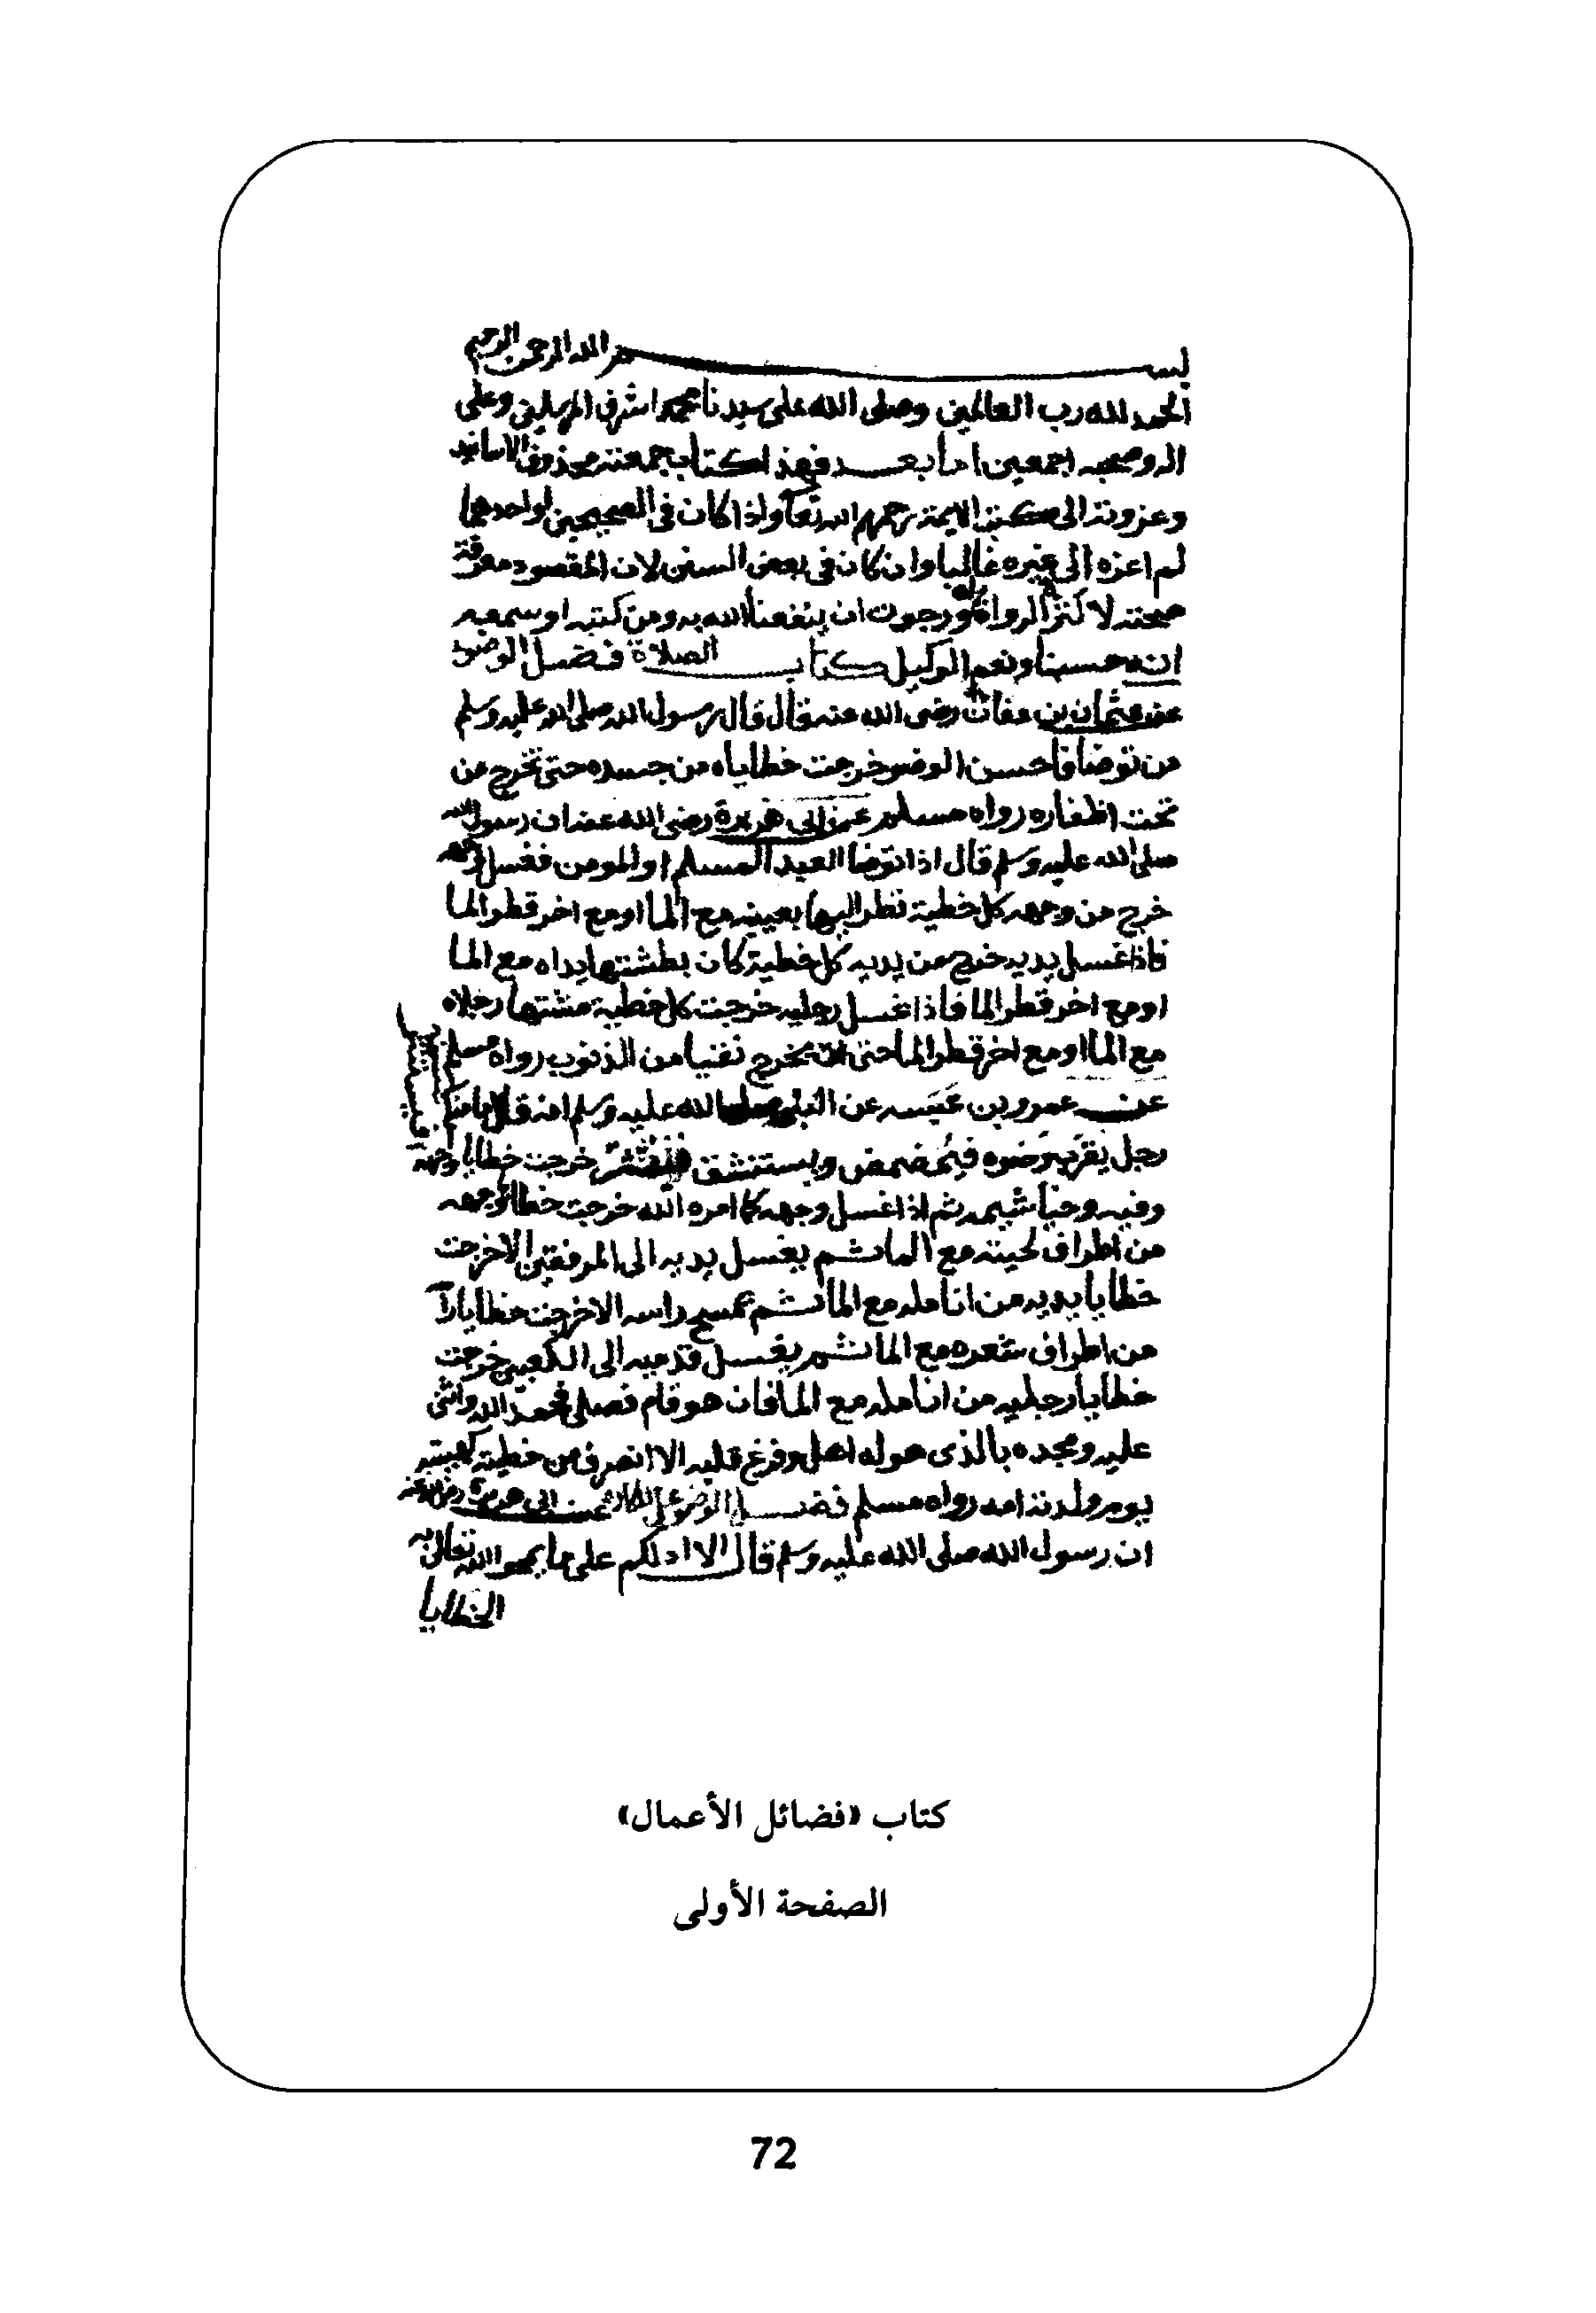 بسم الله الرحمن الرحيم
الحمد لله رب العالمين وصلى الله على سيدنا محمد اشرف المرسلين وعلى
اله وصحبه اجمعين اما بعد فهذا كتاب جمعته محذوف الاسانيد
وعزوته الى كتب الايمة رحمهم الله تعا واذا كان في الصحيحين او احدهما
لم اعزه الى غيره غالبا وان كان في بعض السنن لان المقصود معرفة
صحته لا كثرة الرواة ورجوت ان ينفعنا الله به ومن كتبه او سمعه
انه حسبنا ونعم الوكيل كتاب الصلاة فضل الوضوء
عن عثمان بن عفان رضى الله عنه قال قال رسول الله صلى الله عليه وسلم
من توضا فاحسن الوضو خرجت خطاياه من جسده حتى تخرج من
تحت اظفاره رواه مسلم عن ابي هريرة رضى الله عنه ان رسول الله
صلى الله عليه وسلم قال اذا توضا العبد المسلم او المومن فغسل وجهه
خرج من وجهه كل خطية نظر اليها بعينيه مع الما او مع اخر قطر الما
فاذا غسل يديه خرج من يديه كل خطية كان بطشتها يداه مع الما
او مع اخر قطر الما فاذا غسل رجليه خرجت كل خطية مشتها رجلاه
مع الما او مع اخر قطر الما حتى يخرج نقيا من الذنوب رواه مسلم
عن عمرو بن عبسه عن النبي صلى الله عليه وسلم انه قال ما منكم
رجل يقرب وضوه فيتمضمض ويستنشق فينتثر خرجت خطايا وجهه
وفيه وخياشيمه ثم اذا غسل وجهه كما امره الله خرجت خطايا وجهه
من اطراف لحيته مع الما ثم يغسل يديه الى المرفقين الا خرجت
خطايا يديه من انامله مع الما ثم يمسح راسه الا خرجت خطايا راسه
من اطراف شعره مع الما ثم يغسل قدميه الى الكعبين خرجت
خطايا رجليه من انامله مع الما فان هو قام فصلى فحمد الله واثنى
عليه ومجده بالذي هو له اهل وفرغ قلبه الا انصرف من خطيته كهيئته
يوم ولدته امه رواه مسلم فضل الوضو على المكاره عن ابي هريرة رضي الله عنه
ان رسول الله صلى الله عليه وسلم قال الا ادلكم على ما يمحو الله تعالى به
الخطايا
كتاب «فضائل الأعمال»
الصفحة الأولى
72